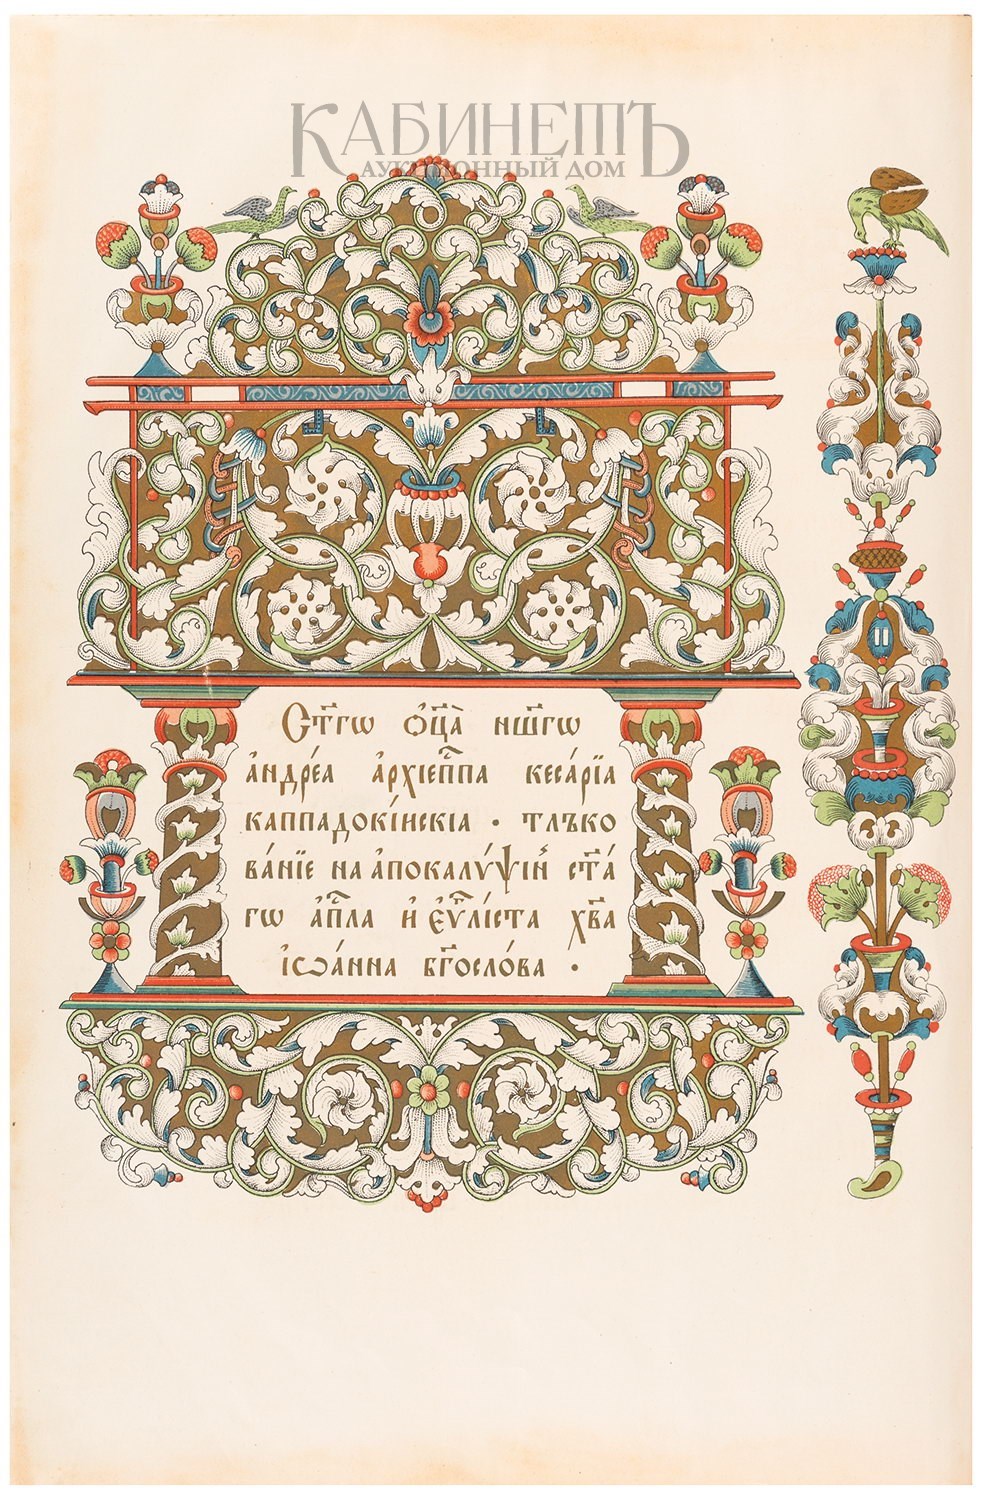 КАБИНЕТЪ
АУКЦИОННЫЙ ДОМ
Ст҃гѡ ѻ҆ц҃а̀ нш҃гѡ
а҆ндре́а а҆рхїеп҃па кеса́рїа
каппадокі́искіа · тлъко
ва́нїе на а҆покалѵ́ѱїꙗ ст҃а́
гѡ а҆п҃ла и҆ є҆ѵ҃лі́ста хв҃а
і҆ѡа́нна бг҃осло́ва ·